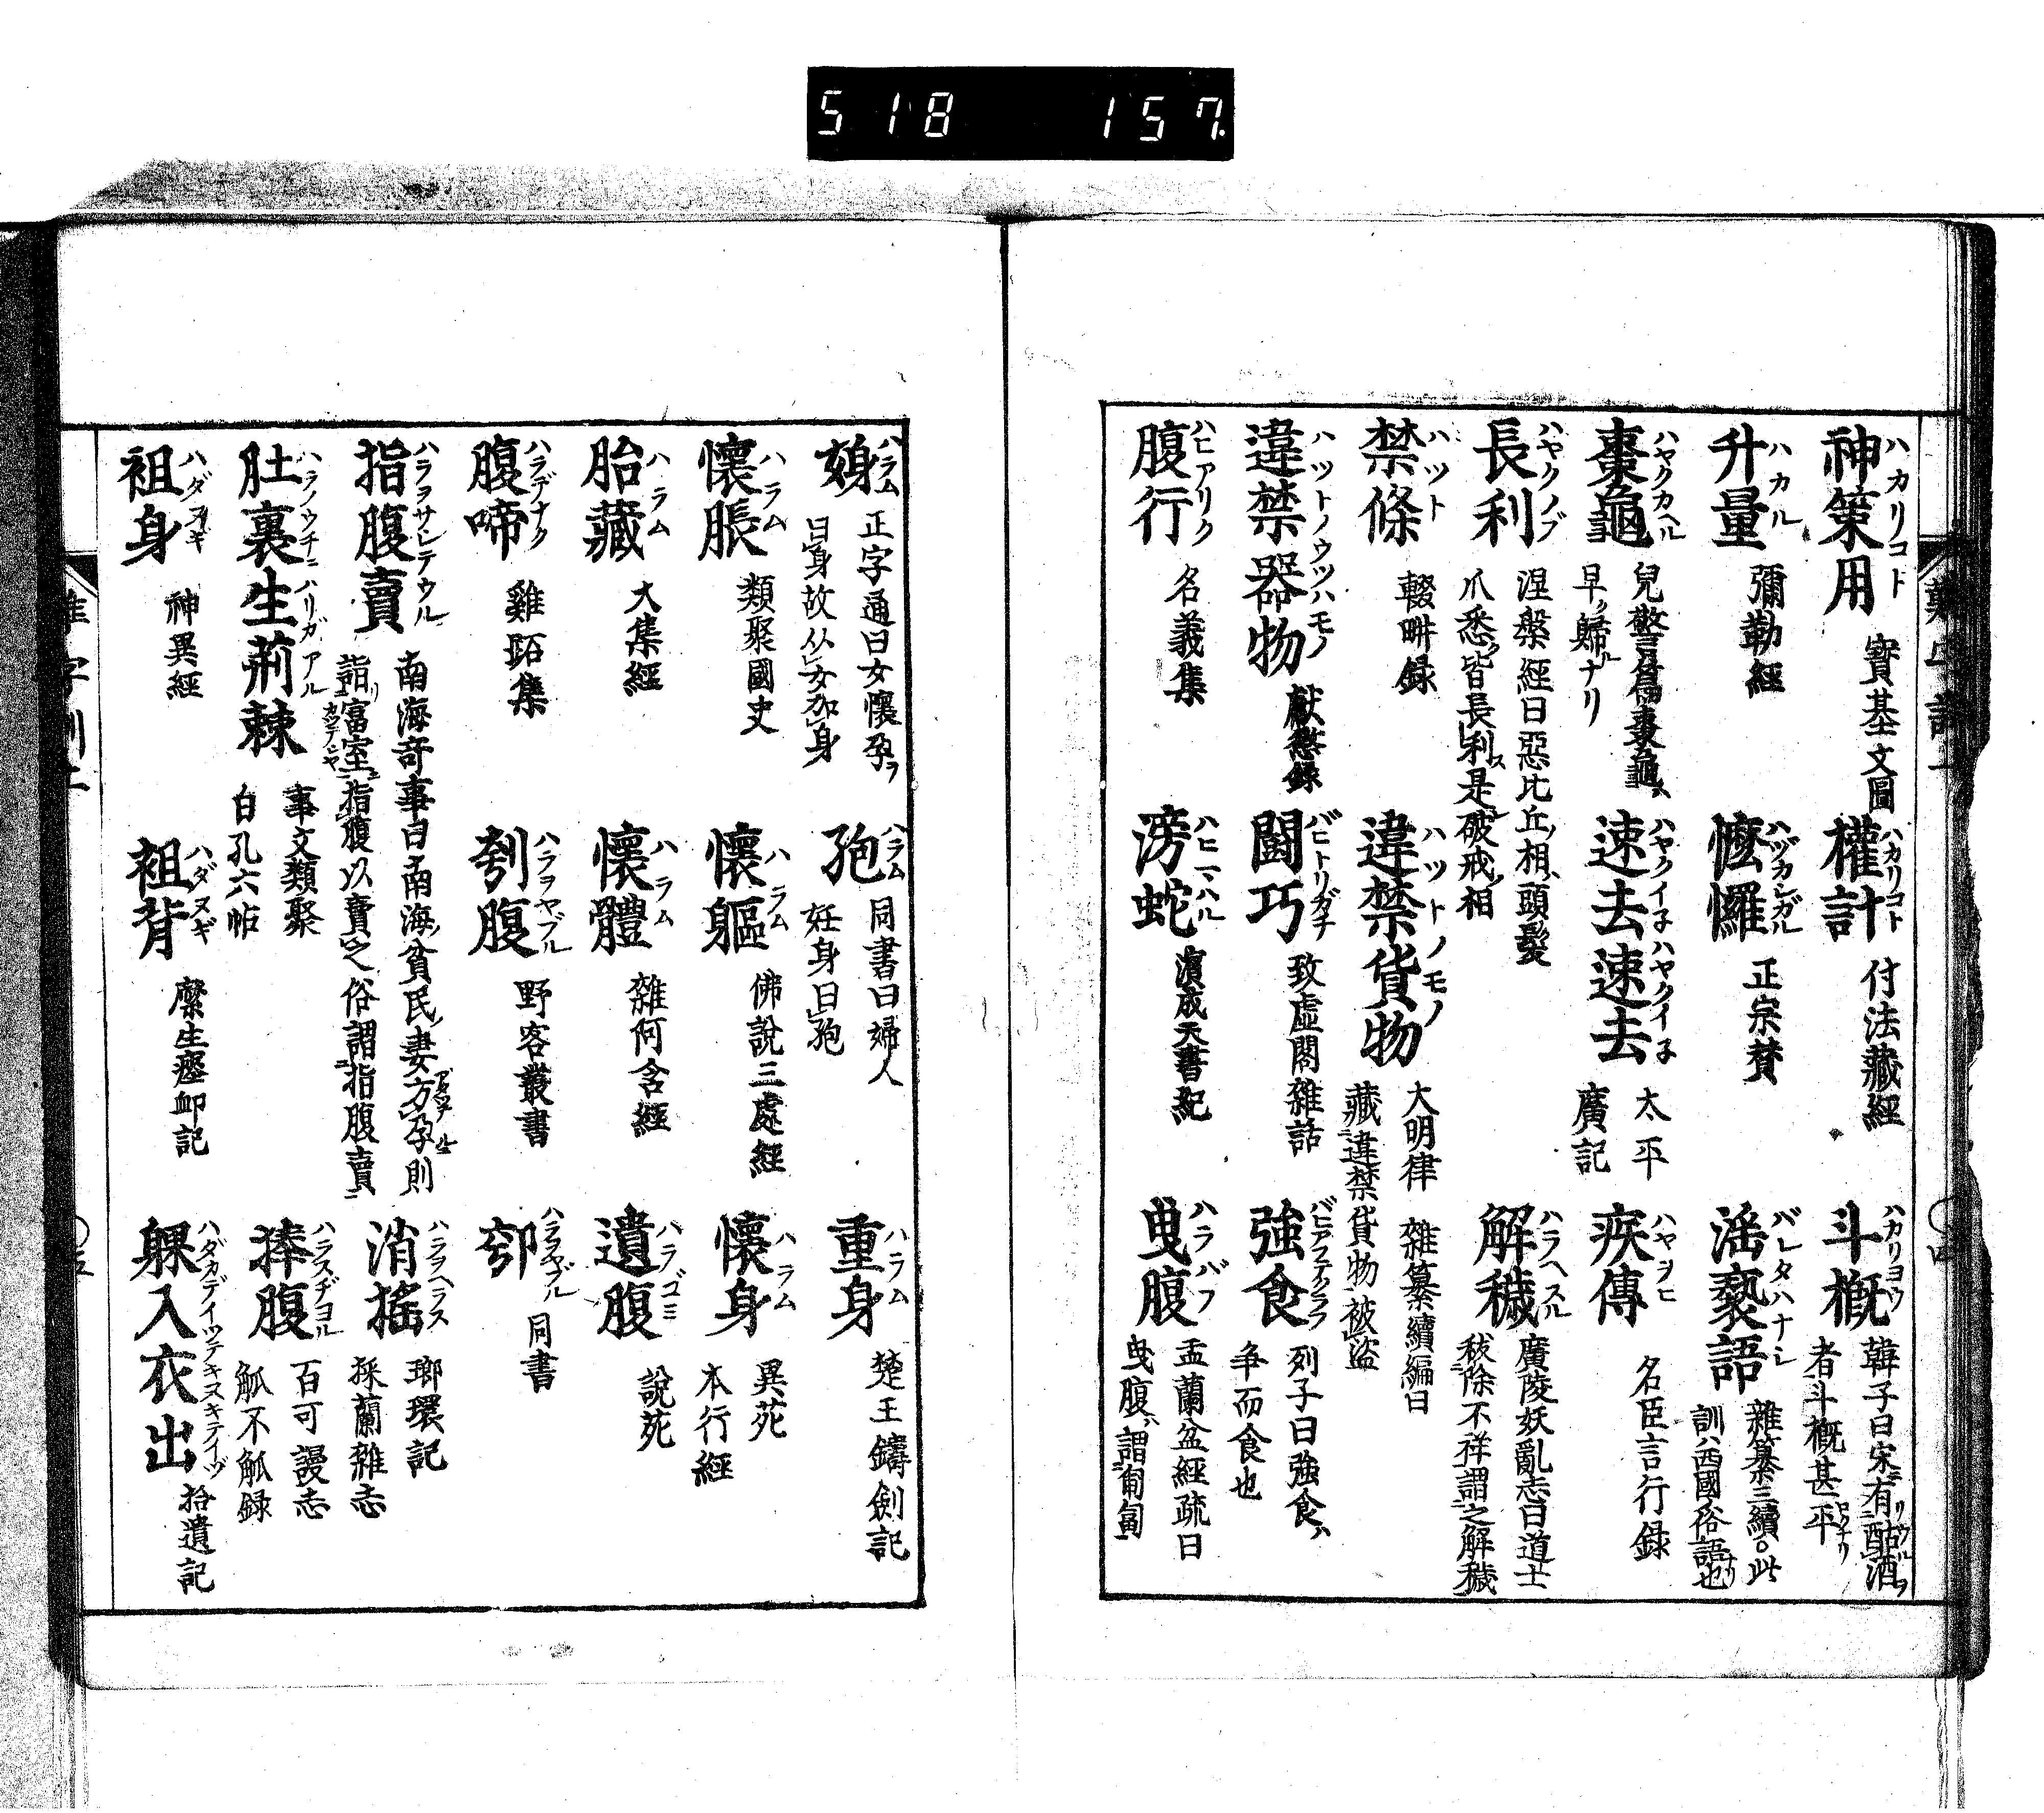 518 157
神策用 ハカリコト 寶基文圖
權計 ハカリコト 付法藏經
斗概 ハカリヨウ 韓子曰宋有酤酒者斗概甚平
升量 ハカル 彌勒經
懡㦬 ハヅカシガル 正宗賛
滛褻語 バレタハナシ 雜纂三續○此訓ハ西國俗語也
棗龜 ハヤクカヘル 早歸ナリ
速去速去 ハヤクイネハヤクイネ 太平廣記
疾傳 ハヤヲヒ 名臣言行録
長利 ハヤクノブ 涅槃經曰惡比丘ノ相ハ頭髪爪悉皆長利是破戒相
解穢 ハラヘスル 廣陵妖亂志曰道士秡除不祥謂之解穢
禁條 ハツト 輟畊録
違禁貨物 ハツトノモノ 大明律 雜纂續編曰藏違禁貨物被盗
違禁器物 ハツトノウツハモノ 獻懲録
鬪巧 バヒトリガチ 致虛閣雜話
強食 バヒアフテクラフ 列子曰強食ハ争而食也
腹行 ハヒアリク 名義集
滂蛇 ハヒマハル 濵成天書紀
曳腹 ハラバフ 盂蘭盆經疏曰曳腹ハ謂匍匐
㛛 ハラム 正字通曰女懷孕ヲ曰身故从女加身
孢 ハラム 同書曰婦人妊身曰孢
重身 ハラム 楚王鑄劍記
懷脹 ハラム 類聚國史
懷軀 ハラム 佛說三處經
懷身 ハラム 異苑 本行經
胎藏 ハラム 大集經
懷體 ハラム 雜阿含經
遺腹 ハラゴミ 說苑
腹啼 ハラデナク 雞跖集
刳腹 ハラヲヤブル 野客叢書
ハラヲヤブル 同書
指腹賣 ハラヲサシテウル 南海奇事曰南海ノ貧民ノ妻方孕則詣富室指腹以賣之俗謂指腹賣
消搖 ハラヲヘラス 瑯環記 採蘭雜志
肚裏生荊棘 ハラノウチニハリガアル 事文類聚 白孔六帖
捧腹 ハラスヂヨル 百可謾志 觚不觚録
袒身 ハダヌギ 神異經
袒背 ハダヌギ 麋生瘞䘏記
躶入衣出 ハダカデイツテキヌキテイヅ 拾遺記